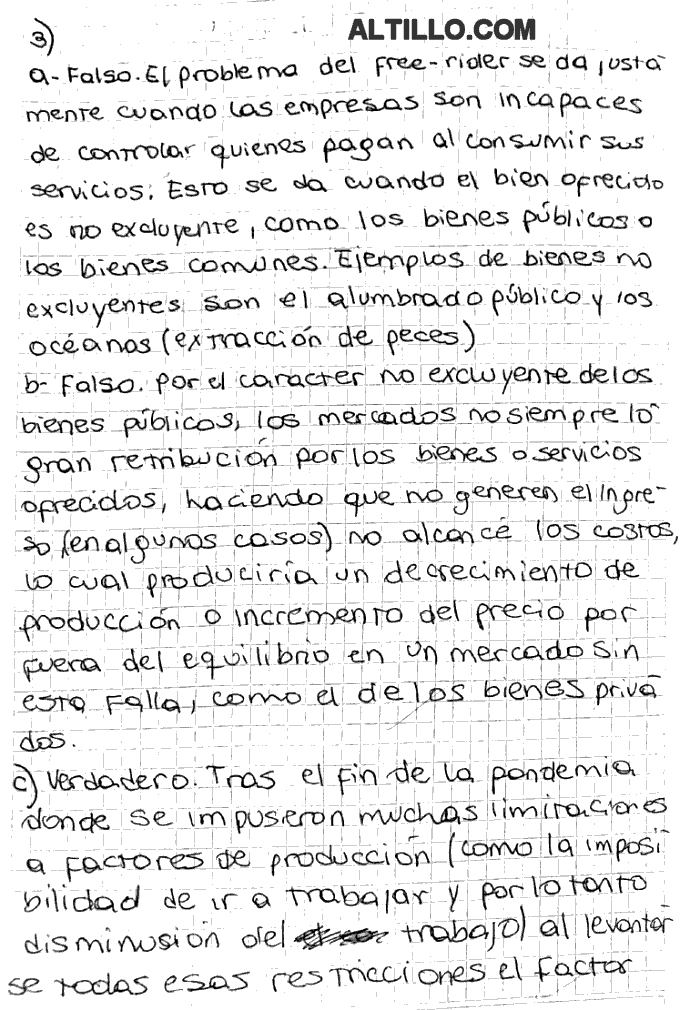 ALTILLO.COM
3)
a- Falso. El problema del free-rider se da justa
mente cuando las empresas son incapaces
de controlar quienes pagan al consumir sus
servicios; Esto se da cuando el bien ofrecido
es no excluyente, como los bienes públicos o
los bienes comunes. Ejemplos de bienes no
excluyentes son el alumbrado público y los
océanos (extracción de peces)
b- Falso. Por el caracter no excluyente de los
bienes públicos, los mercados no siempre lo
gran retribución por los bienes o servicios
ofrecidos, haciendo que no generen el Ingre-
so (en algunos casos) no alcancé los costos,
lo cual produciría un decrecimiento de
producción o incremento del precio por
fuera del equilibrio en un mercado sin
esta Falla, como el de los bienes priva
dos.
c) Verdadero. Tras el fin de la pandemia
donde se impuseron muchas limitaciones
a factores de producción (como la imposi
bilidad de ir a trabajar y por lo tanto
disminusión del trabajo) al levantar
se todas esas restricciones el factor